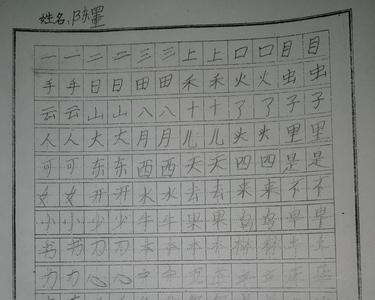 姓名:陈墨
一一二二三三上上口口目目
手手日日田田禾禾火火虫虫
云云山山八八十十了了子子
人人大大月月儿儿头头里里
可可东东西西天天四四是是
女女开开水水去去来来不不
小小少少牛牛果果鸟鸟早早
书书刀刀本本本本林林
力力心心中中正正